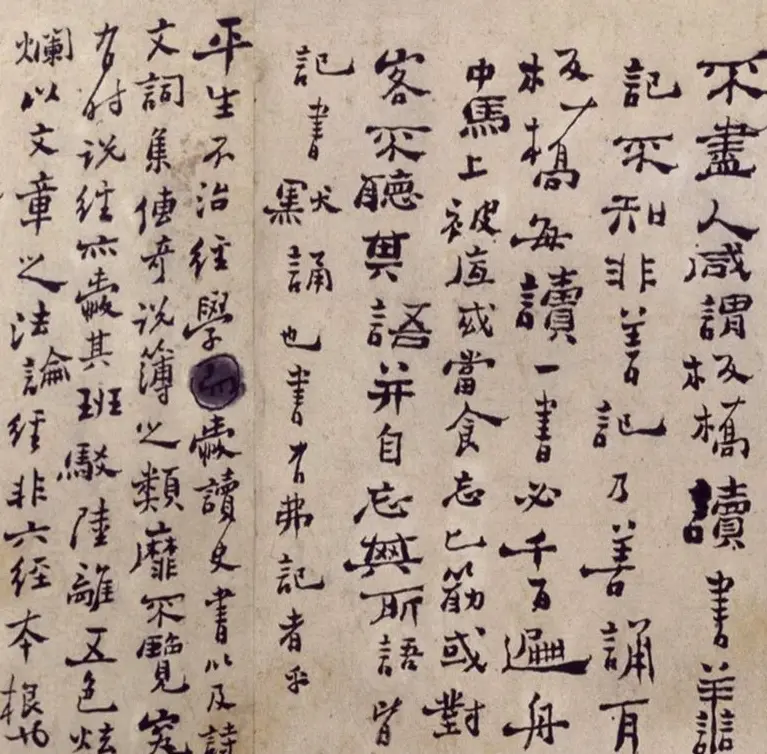 不盡人咸謂板橋讀書善
記不知非善記乃善誦耳
板橋每讀一書必千百遍舟
中馬上被底或當食忘匕筯或對
客不聽其語并自忘其所語皆
記書默誦也書有弗記者乎
平生不治經學愛讀史書以及詩
文詞集傳奇說簿之類靡不覽究
有時说经亦愛其斑駁陸離五色炫
爛以文章之法論经非六经本根也